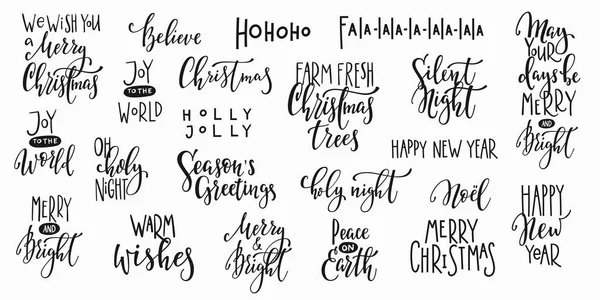 We wish you
a Merry
Christmas
Believe
Hohoho
Fa|a-|a-|a-|a-|a-|a
May
your
days be
Merry
and
Bright
Joy
to the
World
Christmas
Farm fresh
Christmas
trees
Silent
Night
Joy
to the
World
Holly
Jolly
Happy New Year
Oh
holy
night
Season's
Greetings
holy night
Noël
Merry
and
Bright
Warm
wishes
Merry
&
Bright
Peace
on
Earth
Merry
Christmas
Happy
New
Year